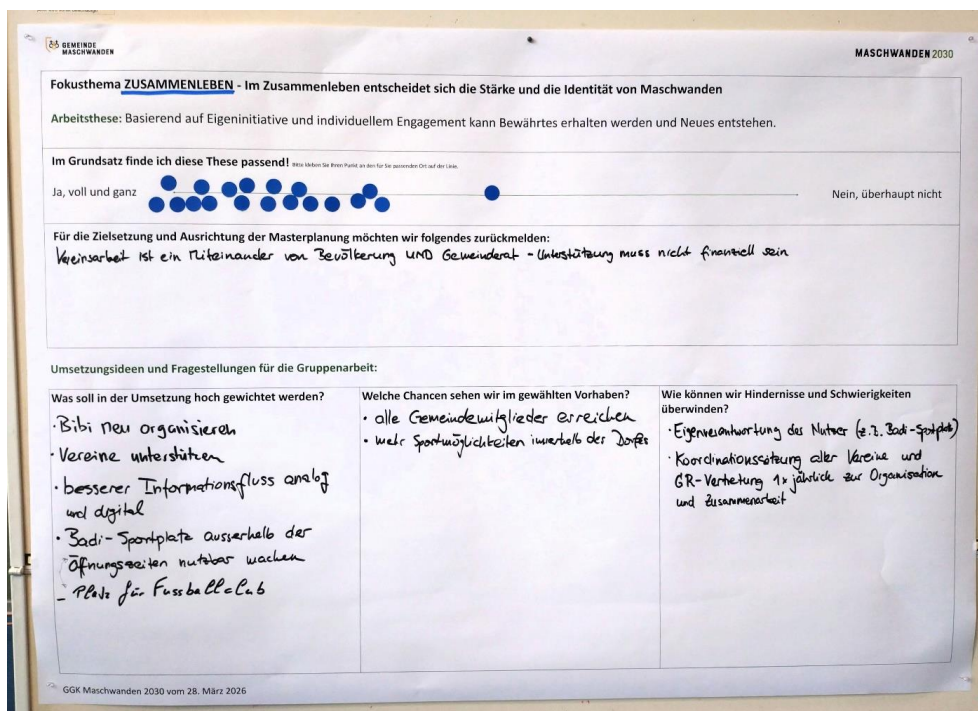 GEMEINDE
MASCHWANDEN
MASCHWANDEN 2030
Fokusthema ZUSAMMENLEBEN - Im Zusammenleben entscheidet sich die Stärke und die Identität von Maschwanden
Arbeitsthese: Basierend auf Eigeninitiative und individuellem Engagement kann Bewährtes erhalten werden und Neues entstehen.
Im Grundsatz finde ich diese These passend! Bitte kleben Sie Ihren Punkt an den für Sie passenden Ort auf der Linie.
Ja, voll und ganz
Nein, überhaupt nicht
Für die Zielsetzung und Ausrichtung der Masterplanung möchten wir folgendes zurückmelden:
Vereinsarbeit ist ein Miteinander von Bevölkerung UND Gemeinderat - Unterstützung muss nicht finanziell sein
Umsetzungsideen und Fragestellungen für die Gruppenarbeit:
Was soll in der Umsetzung hoch gewichtet werden?
· Bibi neu organisieren
· Vereine unterstützen
· besserer Informationsfluss analog
und digital
· Badi-Sportplatz ausserhalb der
Öffnungszeiten nutzbar machen
- Platz für Fussballclub
Welche Chancen sehen wir im gewählten Vorhaben?
· alle Gemeindemitglieder erreichen
· mehr Sportmöglichkeiten innerhalb des Dorfes
Wie können wir Hindernisse und Schwierigkeiten
überwinden?
· Eigenverantwortung der Nutzer (z.B. Badi-Sportplatz)
· Koordinationssitzung aller Vereine und
GR-Vertretung 1x jährlich zur Organisation
und Zusammenarbeit
GGK Maschwanden 2030 vom 28. März 2026